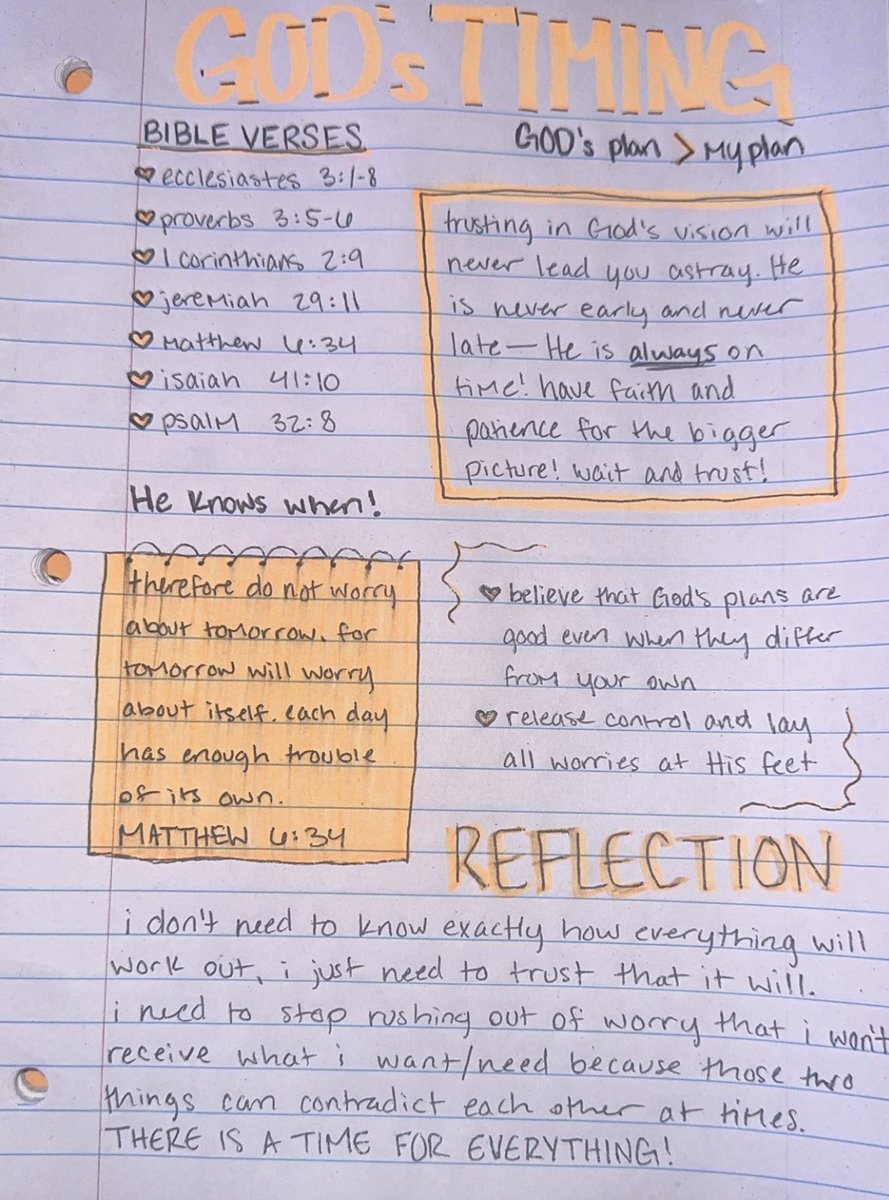 GOD's TIMING
BIBLE VERSES
ecclesiastes 3:1-8
proverbs 3:5-6
1 corinthians 2:9
jeremiah 29:11
matthew 6:34
isaiah 41:10
psalm 32:8
He knows when!
GOD's plan > my plan
trusting in God's vision will
never lead you astray. He
is never early and never
late — He is always on
time! have faith and
patience for the bigger
picture! wait and trust!
therefore do not worry
about tomorrow, for
tomorrow will worry
about itself. each day
has enough trouble
of its own.
MATTHEW 6:34
believe that God's plans are
good even when they differ
from your own
release control and lay
all worries at His feet
REFLECTION
i don't need to know exactly how everything will
work out, i just need to trust that it will.
i need to stop rushing out of worry that i won't
receive what i want/need because those two
things can contradict each other at times.
THERE IS A TIME FOR EVERYTHING!